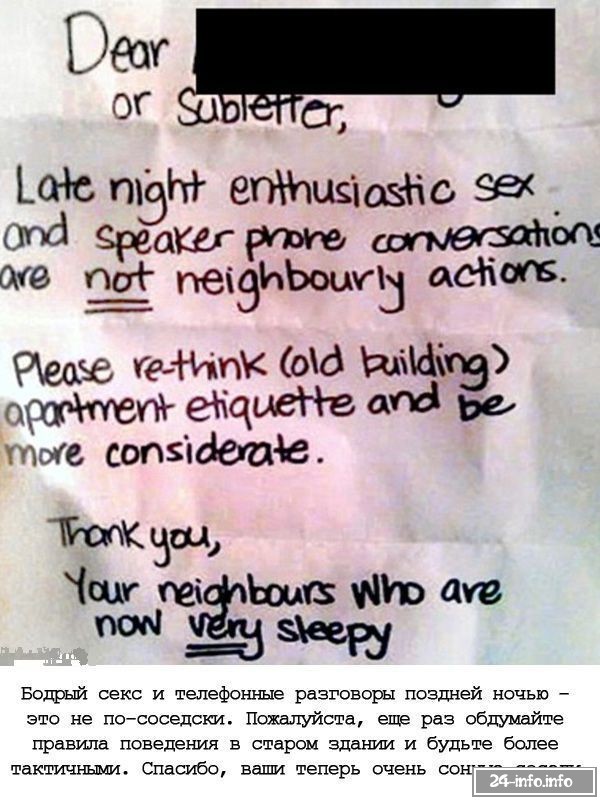 Dear
or Subletter,
Late night enthusiastic sex
and speaker phone conversations
are not neighbourly actions.
Please re-think (old building)
apartment etiquette and be
more considerate.
Thank you,
Your neighbours who are
now very sleepy
Бодрый секс и телефонные разговоры поздней ночью –
это не по-соседски. Пожалуйста, еще раз обдумайте
правила поведения в старом здании и будьте более
тактичными. Спасибо, ваши теперь очень
24-info.info